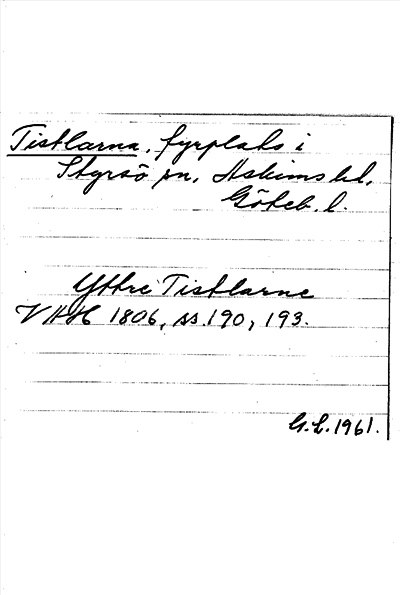 Tistlarna, fyrplats i
Styrsö sn, Askims hd,
Göteb. l.
Yttre Tistlarne
VHH 1806, ss. 190, 193.
G.L. 1961.